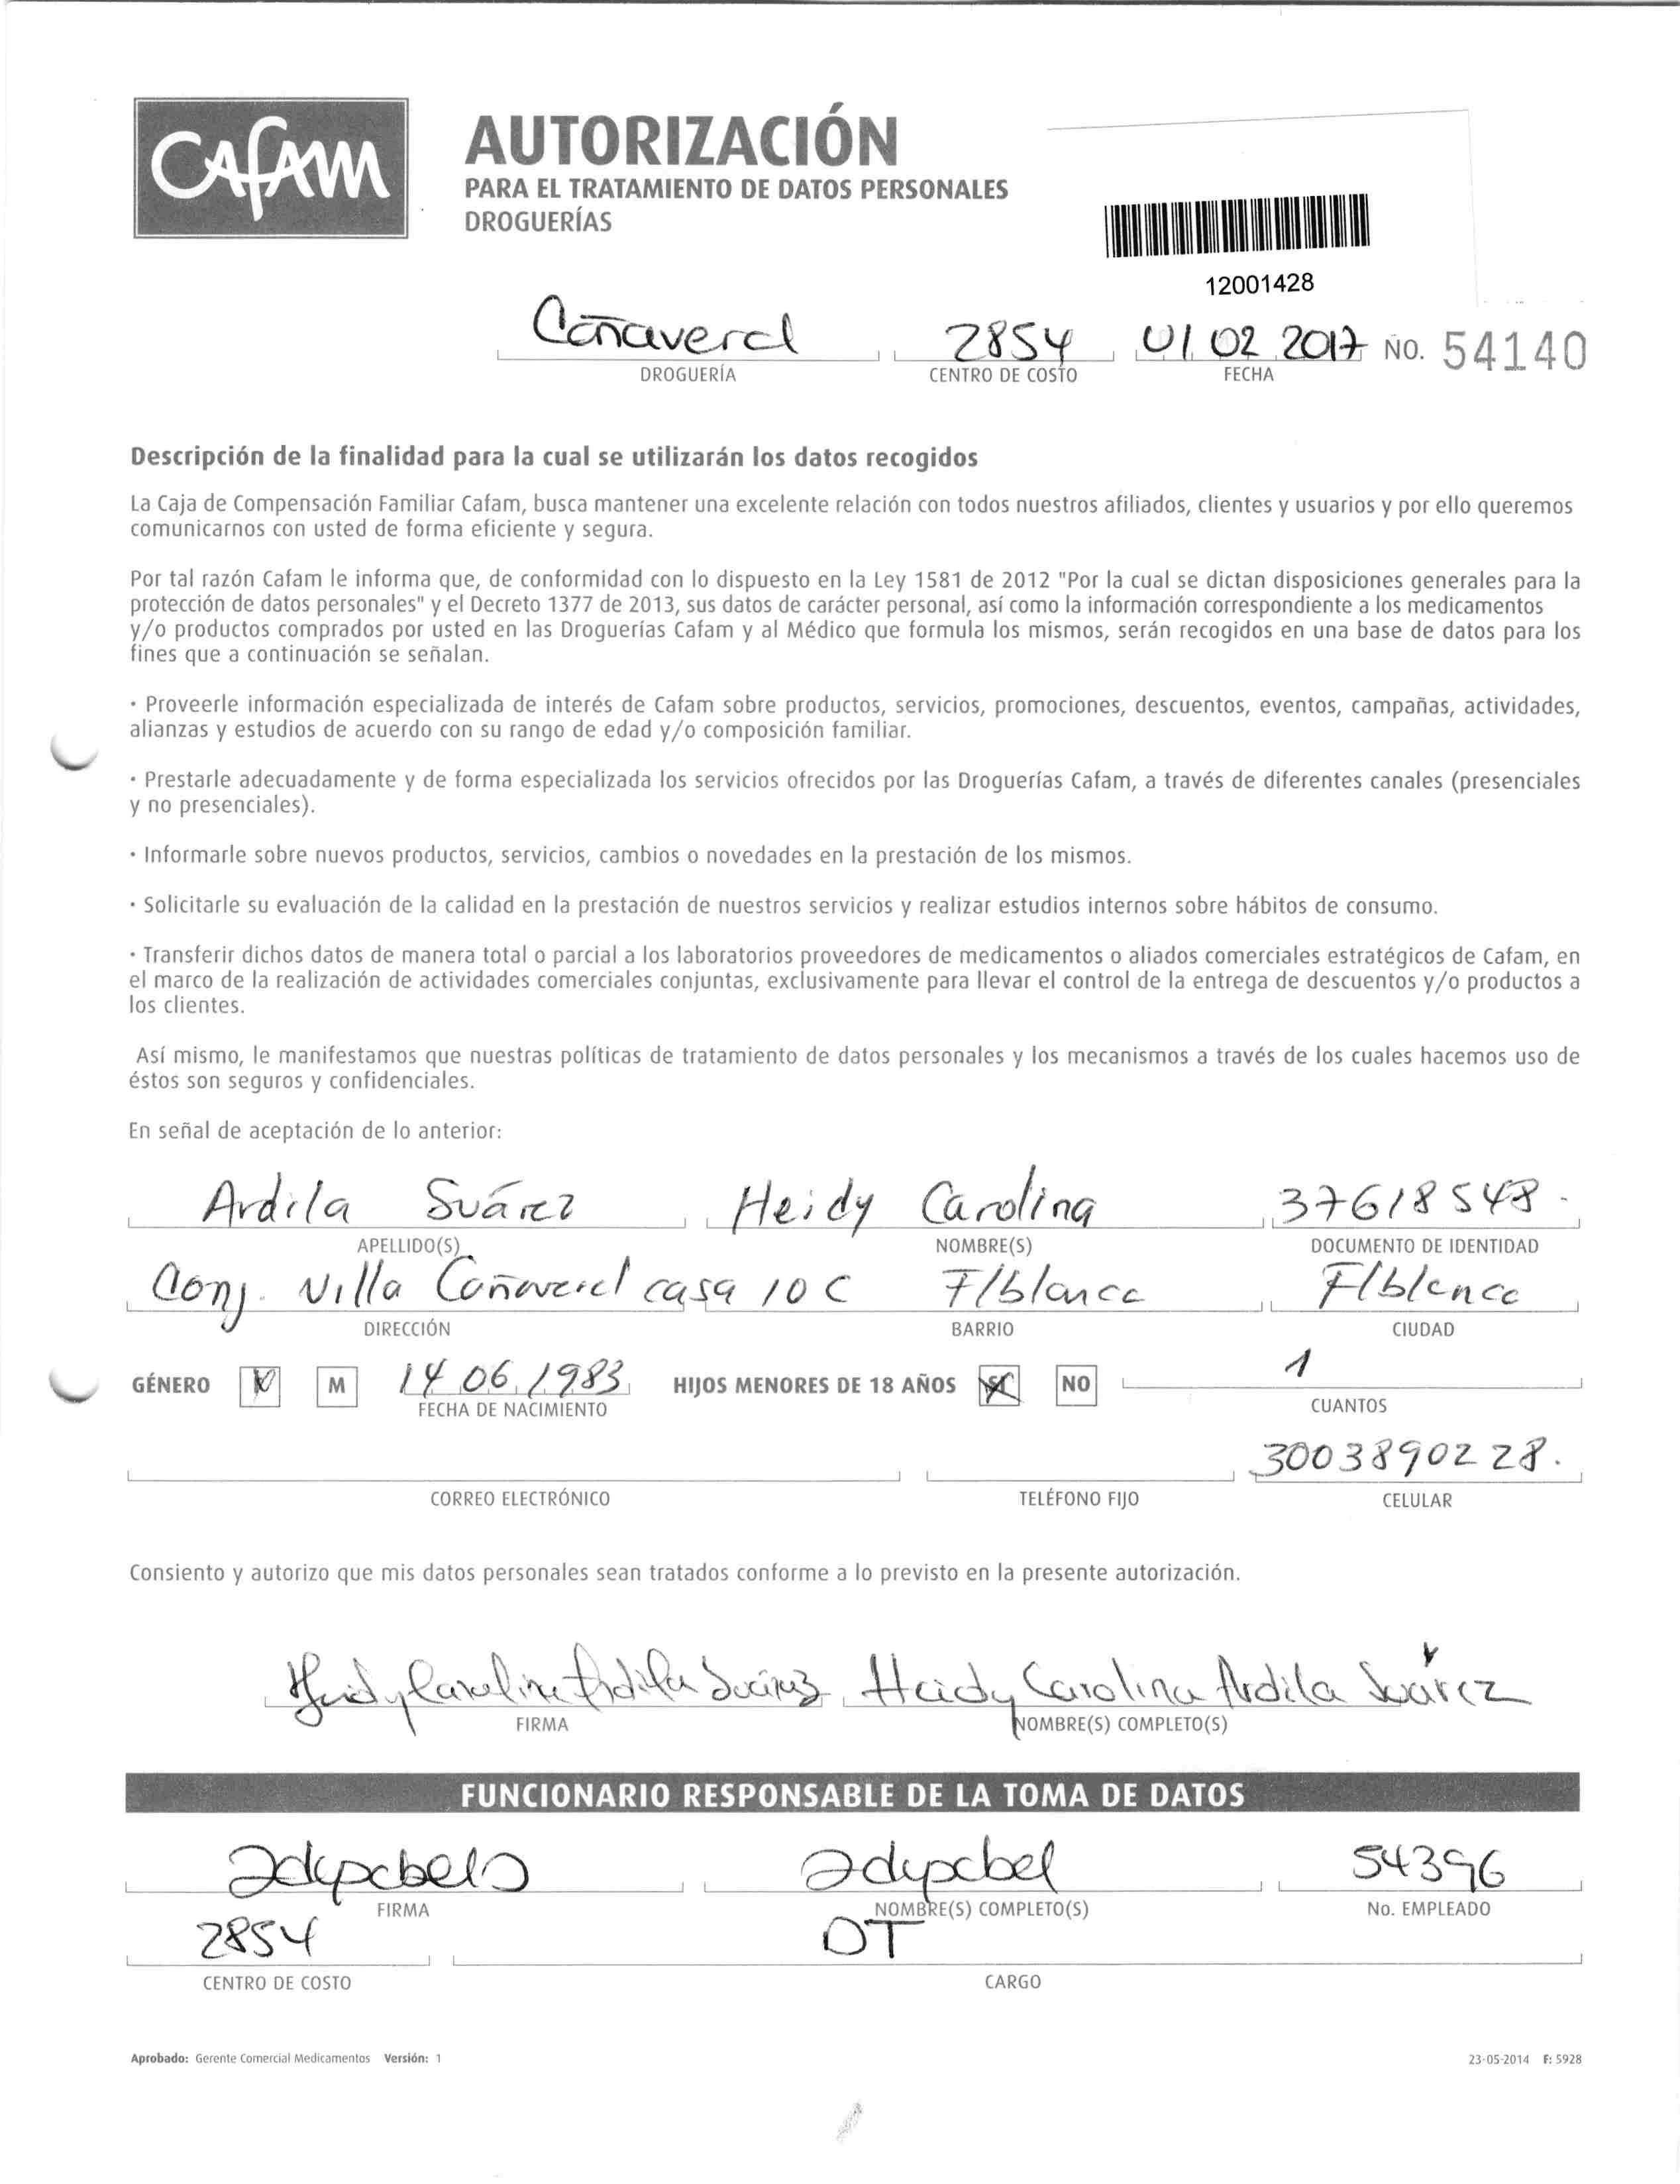 CAFAM
AUTORIZACIÓN
PARA EL TRATAMIENTO DE DATOS PERSONALES
DROGUERÍAS
12001428
Cañaveral 2854 01 02 2017 NO. 54140
DROGUERÍA CENTRO DE COSTO FECHA
Descripción de la finalidad para la cual se utilizarán los datos recogidos
La Caja de Compensación Familiar Cafam, busca mantener una excelente relación con todos nuestros afiliados, clientes y usuarios y por ello queremos
comunicarnos con usted de forma eficiente y segura.
Por tal razón Cafam le informa que, de conformidad con lo dispuesto en la Ley 1581 de 2012 "Por la cual se dictan disposiciones generales para la
protección de datos personales" y el Decreto 1377 de 2013, sus datos de carácter personal, así como la información correspondiente a los medicamentos
y/o productos comprados por usted en las Droguerías Cafam y al Médico que formula los mismos, serán recogidos en una base de datos para los
fines que a continuación se señalan.
· Proveerle información especializada de interés de Cafam sobre productos, servicios, promociones, descuentos, eventos, campañas, actividades,
alianzas y estudios de acuerdo con su rango de edad y/o composición familiar.
· Prestarle adecuadamente y de forma especializada los servicios ofrecidos por las Droguerías Cafam, a través de diferentes canales (presenciales
y no presenciales).
· Informarle sobre nuevos productos, servicios, cambios o novedades en la prestación de los mismos.
· Solicitarle su evaluación de la calidad en la prestación de nuestros servicios y realizar estudios internos sobre hábitos de consumo.
· Transferir dichos datos de manera total o parcial a los laboratorios proveedores de medicamentos o aliados comerciales estratégicos de Cafam, en
el marco de la realización de actividades comerciales conjuntas, exclusivamente para llevar el control de la entrega de descuentos y/o productos a
los clientes.
Así mismo, le manifestamos que nuestras políticas de tratamiento de datos personales y los mecanismos a través de los cuales hacemos uso de
éstos son seguros y confidenciales.
En señal de aceptación de lo anterior:
Ardila Suárez Heidy Carolina 37618548.
APELLIDO(S) NOMBRE(S) DOCUMENTO DE IDENTIDAD
Conj. Villa Cañaveral casa 10 C F/blanca F/blanca
DIRECCIÓN BARRIO CIUDAD
GÉNERO M 14 06 1983 HIJOS MENORES DE 18 AÑOS SI NO 1
FECHA DE NACIMIENTO CUANTOS
3003890228.
CORREO ELECTRÓNICO TELÉFONO FIJO CELULAR
Consiento y autorizo que mis datos personales sean tratados conforme a lo previsto en la presente autorización.
Heidy Carolina Ardila Suárez Heidy Carolina Ardila Suárez
FIRMA NOMBRE(S) COMPLETO(S)
FUNCIONARIO RESPONSABLE DE LA TOMA DE DATOS
54396
FIRMA NOMBRE(S) COMPLETO(S) No. EMPLEADO
2854 DT
CENTRO DE COSTO CARGO
Aprobado: Gerente Comercial Medicamentos Versión: 1 23-05-2014 F: 5928